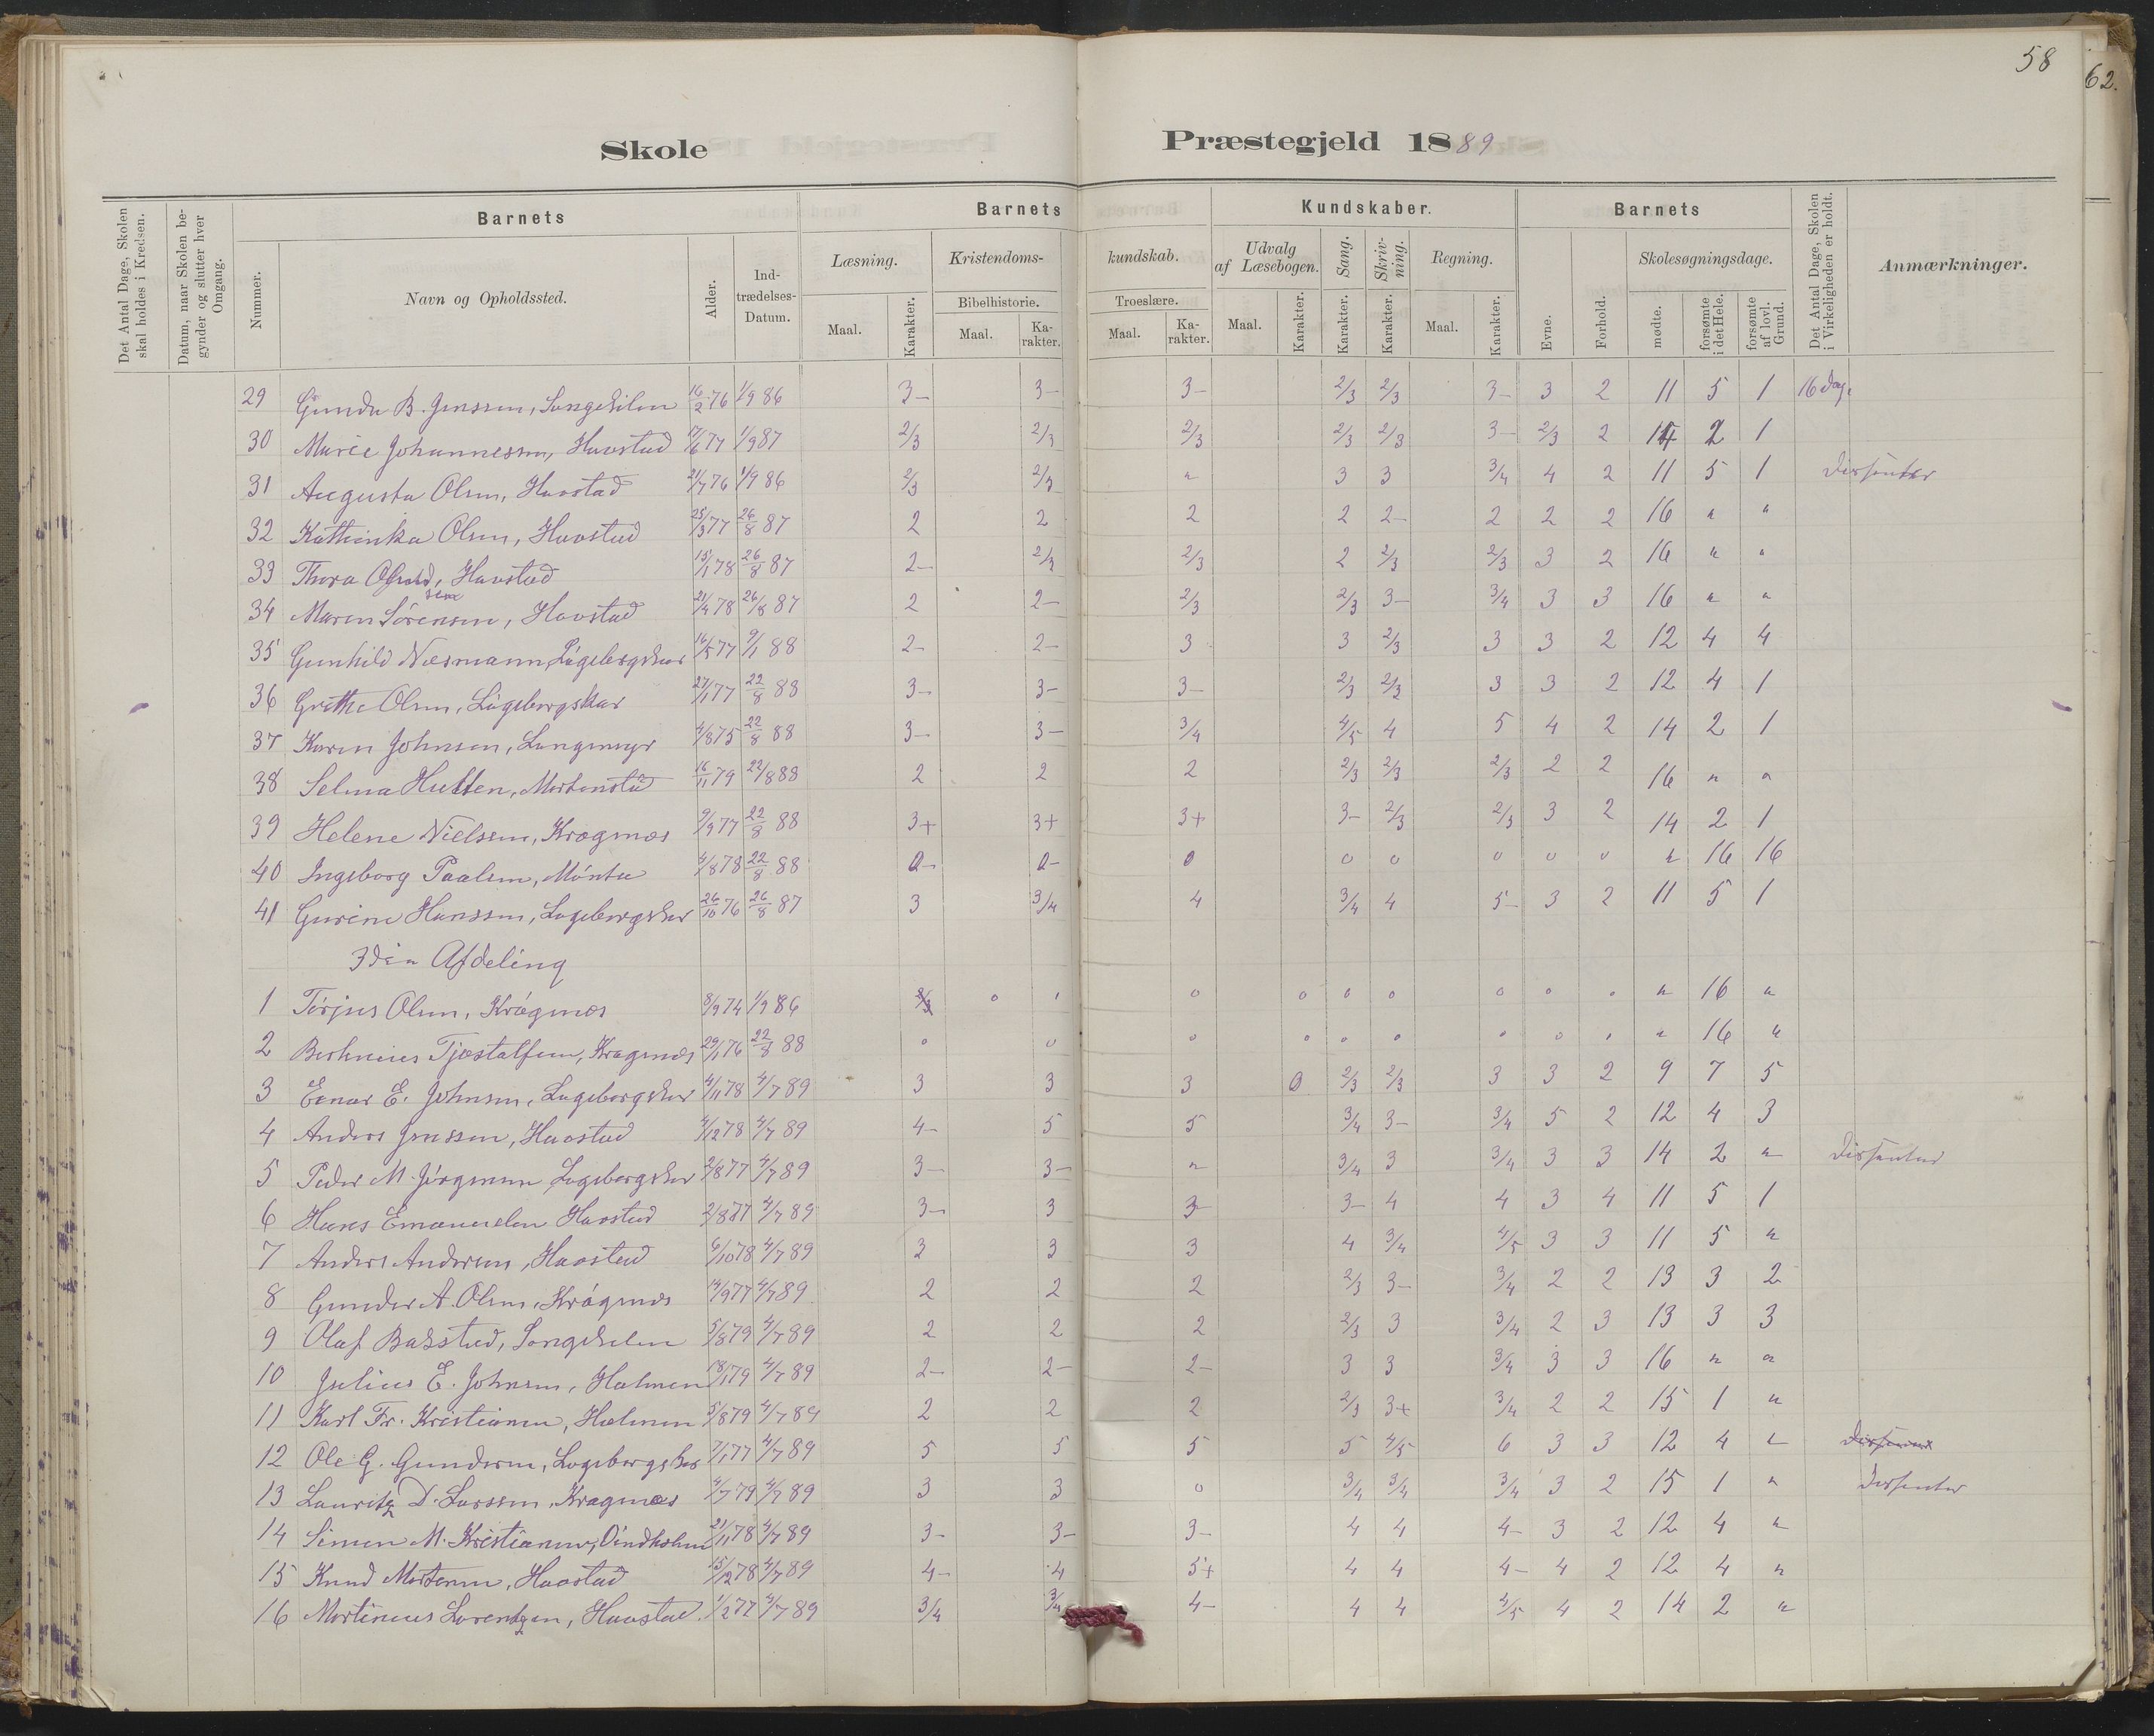 58
62.
Skole Præstegjeld 1889
Det Antal Dage, Skolen skal holdes i Kredsen.
Datum, naar Skolen begynder og slutter hver Omgang.
Barnets
Nummer.
Navn og Opholdssted.
Alder.
Indtrædelses-Datum.
Barnets Kundskaber.
Læsning.
Maal. Karakter.
Kristendomskundskab.
Bibelhistorie. Troeslære.
Maal. Karakter. Maal. Karakter.
Udvalg af Læsebogen.
Maal. Karakter.
Sang. Karakter.
Skrivning. Karakter.
Regning.
Maal. Karakter.
Barnets
Evne. Forhold.
Skolesøgningsdage.
mødte. forsømte i det Hele. forsømte af lovl. Grund.
Det Antal Dage, Skolen i Virkeligheden er holdt.
Anmærkninger.
29 B. Jenssen, 16/2 76 1/9 86 3- 3- 3- 2/3 2/3 3- 3 2 11 5 1 16 Dage
30 Marie Johannessen, Havstad 17/6 77 1/9 87 2/3 2/3 2/3 2/3 2/3 3- 2/3 2 14 2 1
31 Augusta Olsen, Havstad 21/7 76 1/9 86 2/3 2/3 " 3 3 3/4 4 2 11 5 1 Dissenter
32 Kathinka Olsen, Havstad 25/3 77 26/8 87 2 2 2 2 2- 2 2 2 16 " "
33 Thora Havstad 15/1 78 26/8 87 2- 2/3 2/3 2 2/3 2/3 3 2 16 " "
34 Maren Sørensen, Havstad 21/4 78 26/8 87 2 2- 2/3 2/3 3- 3/4 3 3 16 " "
35 Gunhild Næsmann, 16/5 77 9/1 88 2- 2- 3 3 2/3 3 3 2 12 4 4
36 Grethe Olsen, 27/1 77 22/8 88 3- 3- 3- 2/3 2/3 3 3 2 12 4 1
37 Karen Johnsen, Langmyr 4/8 75 22/8 88 3- 3- 3/4 4/5 4 5 4 2 14 2 1
38 Selma 16/11 79 22/8 88 2 2 2 2/3 2/3 2/3 2 2 16 " "
39 Helene Nielssen, Kragmoes 9/9 77 22/8 88 3+ 3+ 3+ 3- 2/3 2/3 3 2 14 2 1
40 Ingeborg Paalsen, 4/8 78 22/8 88 0- 0- 0 0 0 0 0 0 " 16 16
41 Gurine Hanssen, 26/10 76 26/8 87 3 3/4 4 3/4 4 5- 3 2 11 5 1
3die Afdeling
1 Torjus Olsen, 8/9 74 1/9 86 0 0 0 0 0 0 0 " 16 "
2 29/1 76 22/8 88 0 0 0 0 0 0 0 0 " 16 "
3 Einar E. Johnsen, 4/11 78 4/7 89 3 3 3 0 2/3 2/3 3 3 2 9 7 5
4 Anders Jenssen, Havstad 4/12 78 4/7 89 4- 5 5 3/4 3- 3/4 5 2 12 4 3
5 Peder M. Jørgensen 2/8 77 4/7 89 3- 3- " 3/4 3 3/4 3 3 14 2 " Dissenter
6 Hans Emanuelsen Havstad 2/8 77 4/7 89 3- 3 3- 3- 4 4 3 4 11 5 1
7 Anders Andersen, Havstad 6/10 78 4/7 89 3 3 3 4 3/4 4/5 3 3 11 5 "
8 Gunder A. Olsen, 14/9 77 4/7 89 2 2 2 2/3 3- 3/4 2 2 13 3 2
9 Olaf 5/8 79 4/7 89 2 2 2 2/3 3 3/4 2 3 13 3 3
10 Julius E. Johnsen, Holmen 18/1 79 4/7 89 2- 2- 2- 3 3 3/4 3 3 16 " "
11 Karl Fr. Kristiansen, Holmen 5/8 79 4/7 89 2 2 2 2/3 3+ 3/4 2 2 15 1 "
12 Ole G. Gundersen, 7/1 77 4/7 89 5 5 5 5 4/5 6 3 3 12 4 "
13 Lauritz D. Larssen, Kragmoes 4/7 79 4/7 89 3 3 0 3/4 3/4 3/4 3 2 15 1 " Dissenter
14 Simen M. Kristiansen, 21/11 78 4/7 89 3- 3- 3- 4 4 4- 3 2 12 4 "
15 Knud Mortensen, Havstad 15/12 78 4/7 89 4- 4 5+ 4 4 4- 4 2 12 4 "
16 Martinius Lorentzen, Havstad 1/2 77 4/7 89 3/4 3/4 4- 4 4 4/5 4 2 14 2 "